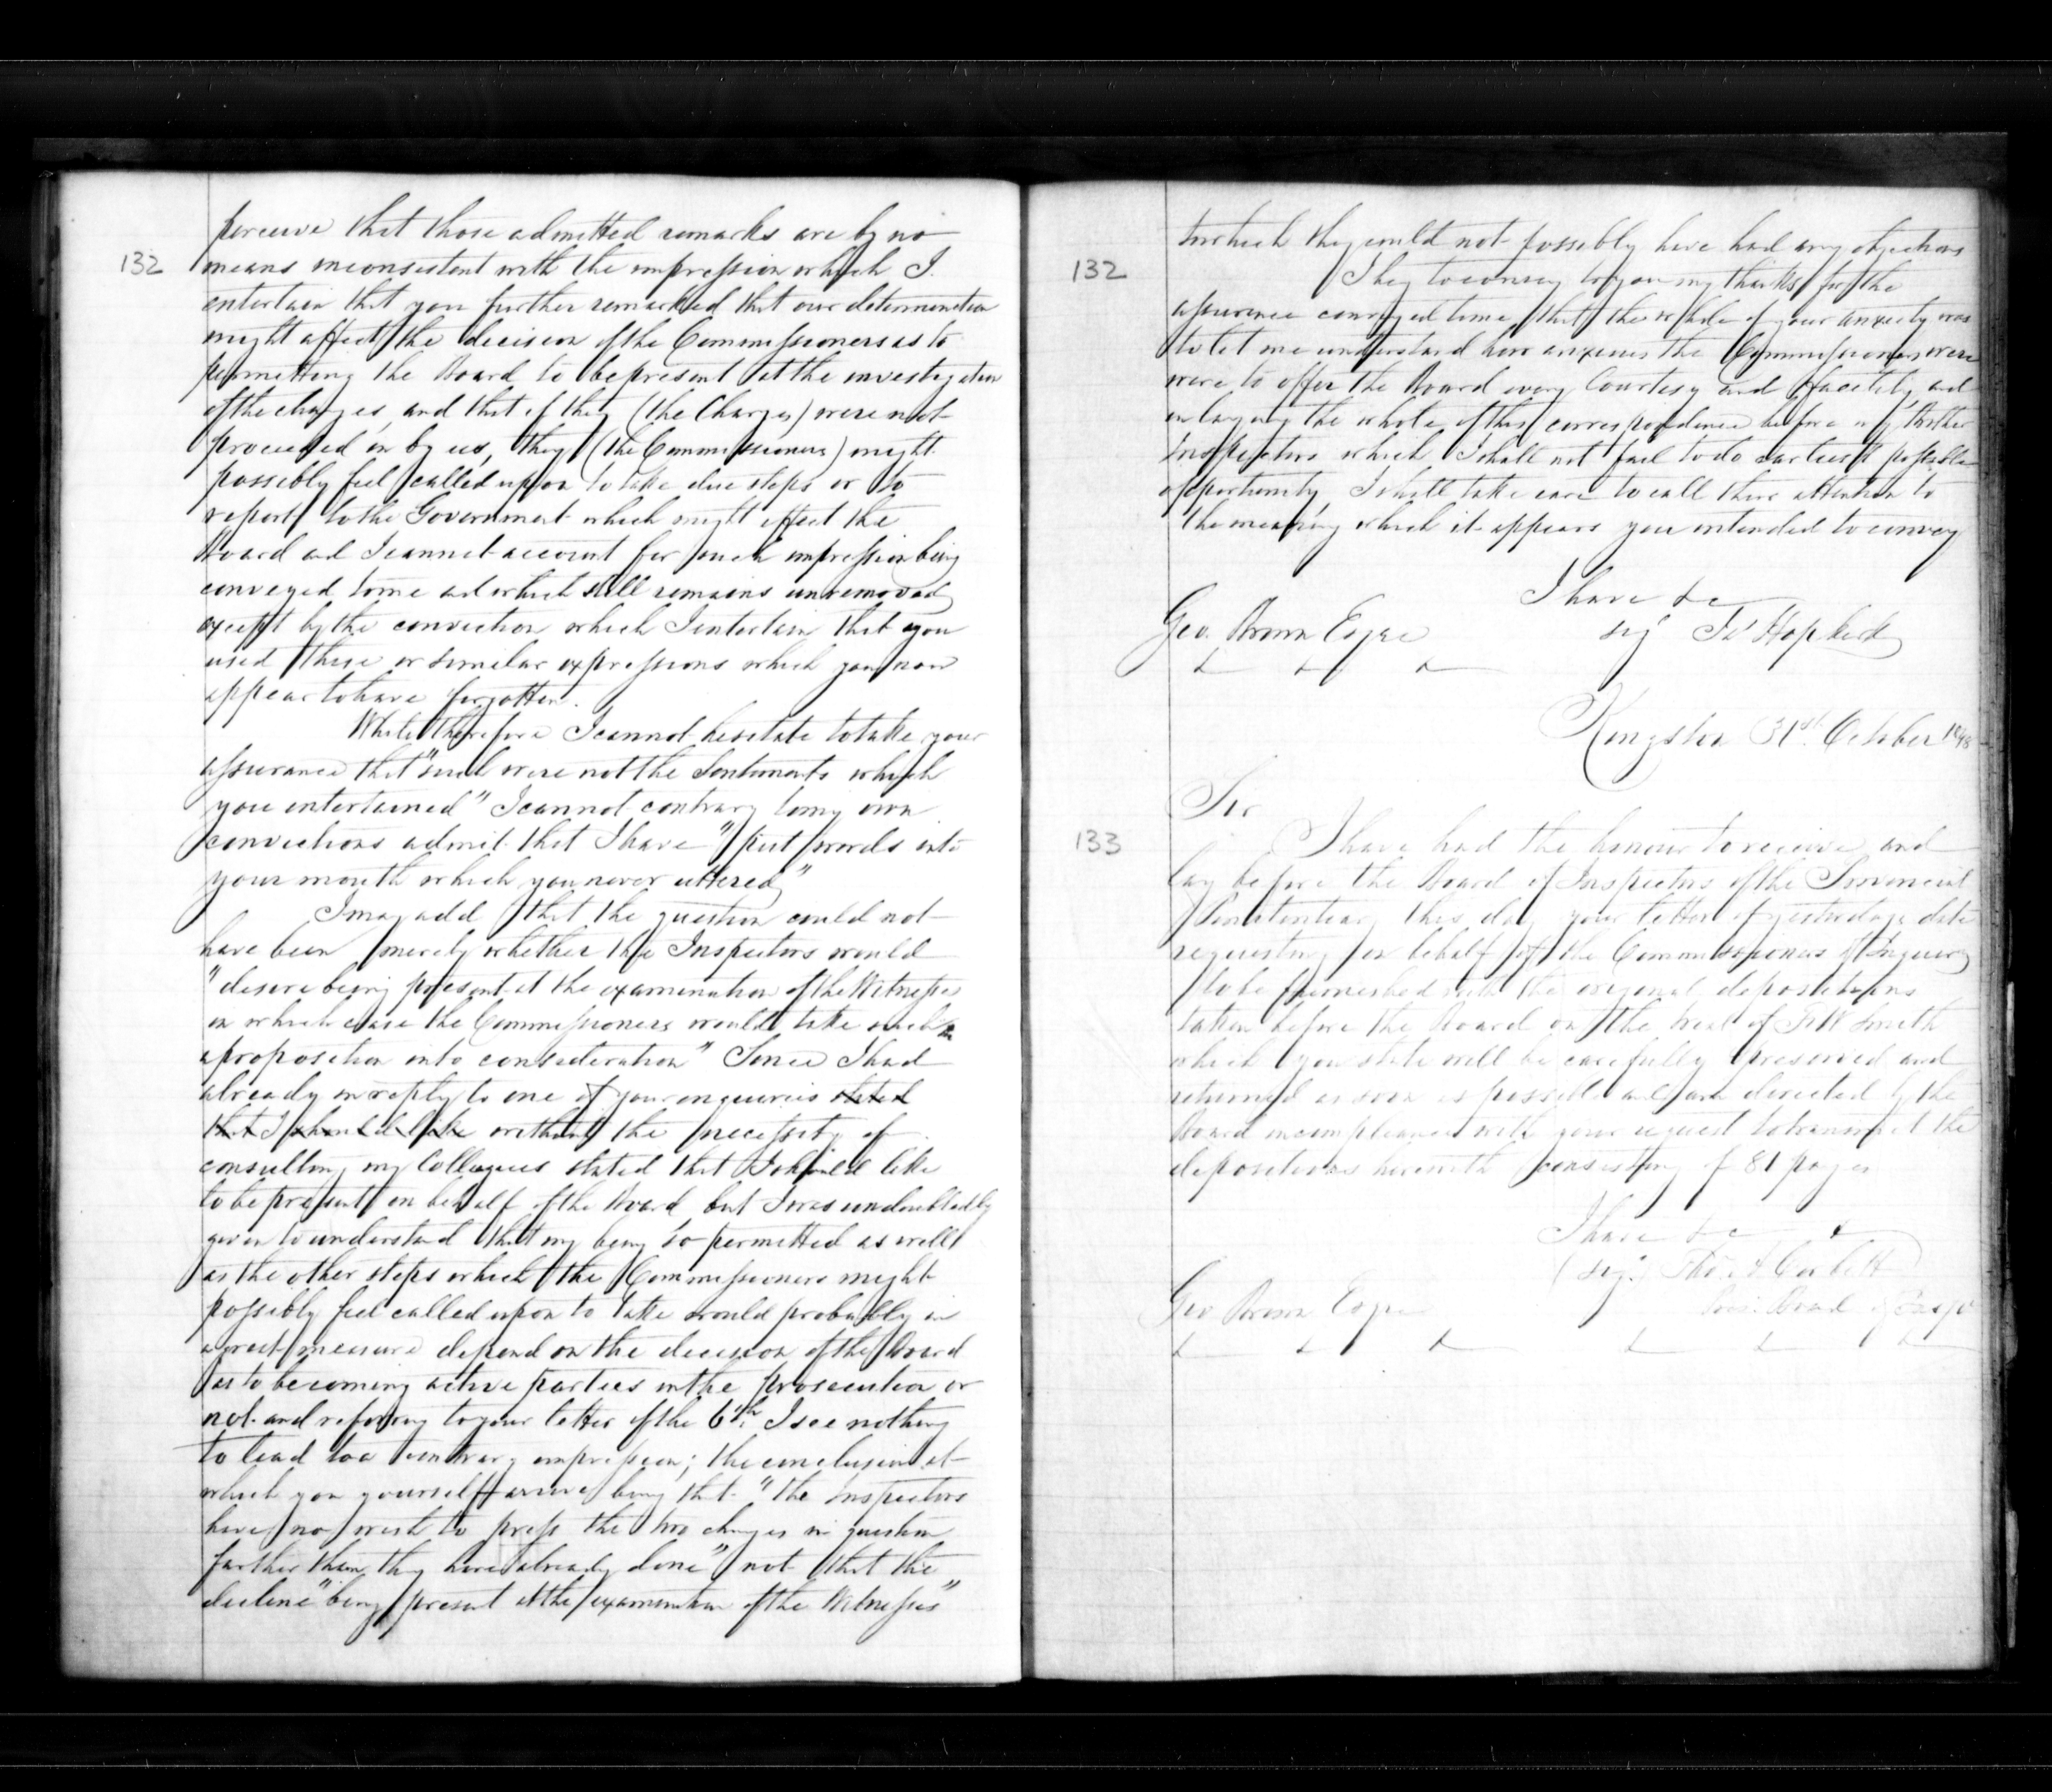 132
perceive that those admitted remarks are by no
means inconsistent with the impression which I
entertain that you further remarked that our determination
might affect the decision of the Commissioners as to
permitting the Board to be present at the investigation
of the charges, and that if they (the Charges) were not
proceeded in by us, they (the Commissioners) might
possibly feel called upon to take due steps or to
report to the Government which might affect the
Board and I cannot account for such impression being
conveyed to me and which still remains unremoved
except by the conviction which I entertain that you
used these or similar expressions which you now
appear to have forgotten.
While therefore I cannot hesitate to take your
assurance that "such were not the Sentiments which
you entertained" I cannot contrary to my own
convictions admit that I have "put words into
your mouth which you never uttered"
I may add that the question could not
have been merely whether the Inspectors would
"desire being present at the examination of the Witnesses
in which case the Commissioners would take such a
proposition into consideration" Since I had
already in reply to one of your enquiries stated
that I should like without the necessity of
consulting my Colleagues stated that I should like
to be present on behalf of the Board, but I was undoubtedly
given to understand that my being so permitted as well
as the other steps which the Commissioners might
possibly feel called upon to take would probably in
a great measure depend on the decision of the Board
as to becoming active parties in the prosecution or
not and referring to your letter of the 6th I see nothing
to lead to a contrary impression; the conclusion at
which you yourself arrive being that "the Inspectors
have no wish to press the two charges in question
farther than they have already done" not that the
decline "being present at the examination of the Witnesses"
132
to which they could not possibly have had any objections
I beg to convey to you my thanks for the
assurance conveyed to me that the whole of your anxiety was
to let me understand how anxious the Commissioners were
were to offer the Board every Courtesy and facility, and
in laying the whole of this correspondence before my Brother
Inspectors which I shall not fail to do earliest possible
opportunity, I shall take care to call their attention to
the meaning which it appears you intended to convey
I have &c
Geo. Brown Esqre
sig Ts Hopkirk
Kingston 31st October 1848
Sir
133
I have had the honour to receive and
lay before the Board of Inspectors of the Provincial
Penitentiary this day your letter of yesterdays date
requesting on behalf of the Commissioners of Enquiry
to be furnished with the original depositions
taken before the Board on the trial of F W Smith
which you state will be carefully preserved and
returned as soon as possible and am directed by the
Board in compliance with your request to transmit the
depositions herewith consisting of 81 pages
I have &c
(sig) Thos A Corbett
Geo Brown Esqre
Board of Insps